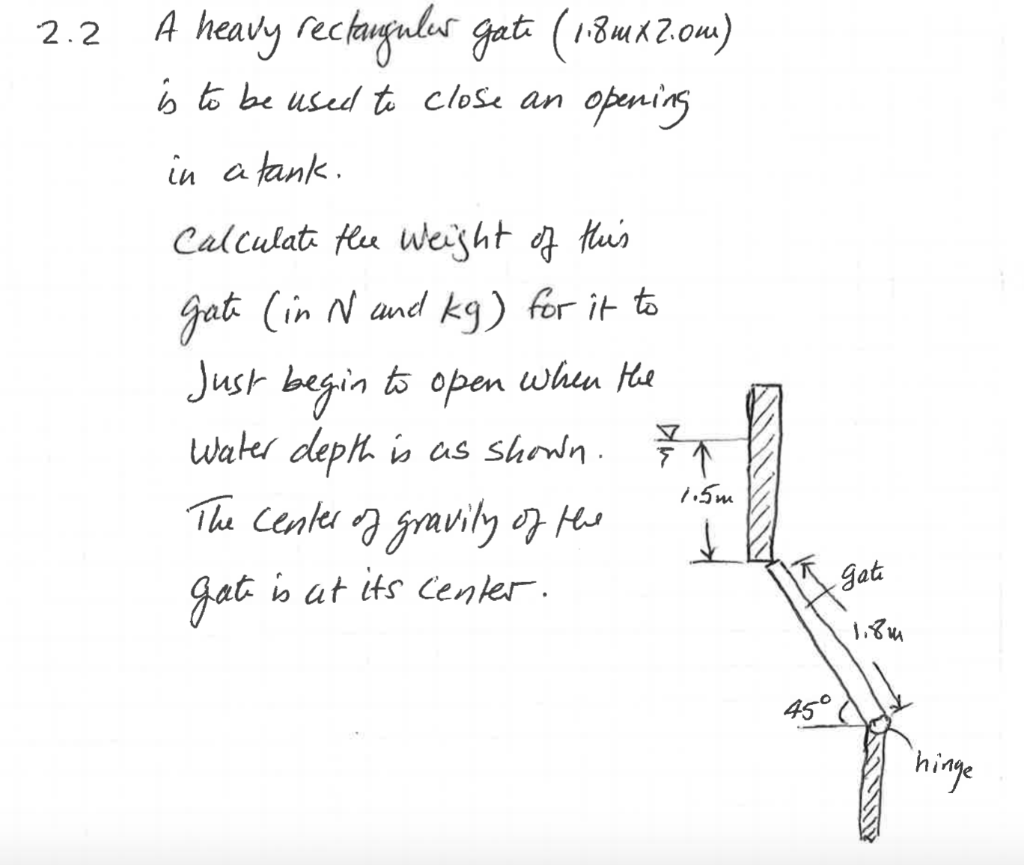 2.2 A heavy rectangular gate (1.8m x 2.0m)
is to be used to close an opening
in a tank.
Calculate the weight of this
gate (in N and kg) for it to
Just begin to open when the
water depth is as shown.
The center of gravity of the
gate is at its center.
1.5m
gate
1.8m
45°
hinge